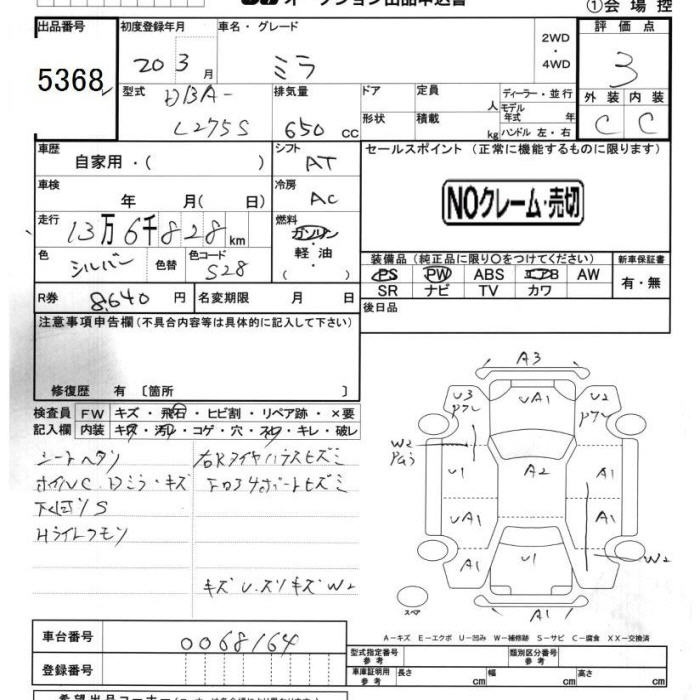 オークション出品申込書
①会場控
出品番号 初度登録年月 車名・グレード 2WD ・ 4WD 評価点
5368 20 3月 ミラ 3
型式 排気量 ドア 定員 人 ディーラー・並行 外装 内装
DBA-
L275S 650cc 形状 積載 kg モデル年式 年 C C
ハンドル 左・右
車歴 自家用・( ) シフト AT セールスポイント (正常に機能するものに限ります)
車検 年 月( 日) 冷房 AC
NOクレーム・売切
走行 13万6千828km 燃料 ガソリン
軽油
・( )
色 シルバー 色替 色コード S28
装備品(純正品に限り○をつけてください) 新車保証書
PS PW ABS エアB AW 有・無
SR ナビ TV カワ
R券 8,640円 名変期限 月 日 後日品
注意事項申告欄(不具合内容等は具体的に記入して下さい)
修復歴 有〔箇所 〕
検査員 FW キズ・飛石・ヒビ割・リペア跡・×要
記入欄 内装 キズ・汚レ・コゲ・穴・スレ・キレ・破レ
シートヘタリ
ホイルNC.Dミラーキズ
下回りS
Hライトクモリ
キズU.スリキズW2
A3
U3 UA1 U2
アシ アシ
W2
U1 A2 A1
UA1 A1
A1 U1 A1 W2
スペア A1
A-キズ E-エクボ U-凹み W-補修跡 S-サビ C-腐食 XX-交換済
車台番号 0068164
型式指定番号 参考 類別区分番号 参考
登録番号
車庫証明用 参考 長さ cm 幅 cm 高さ cm